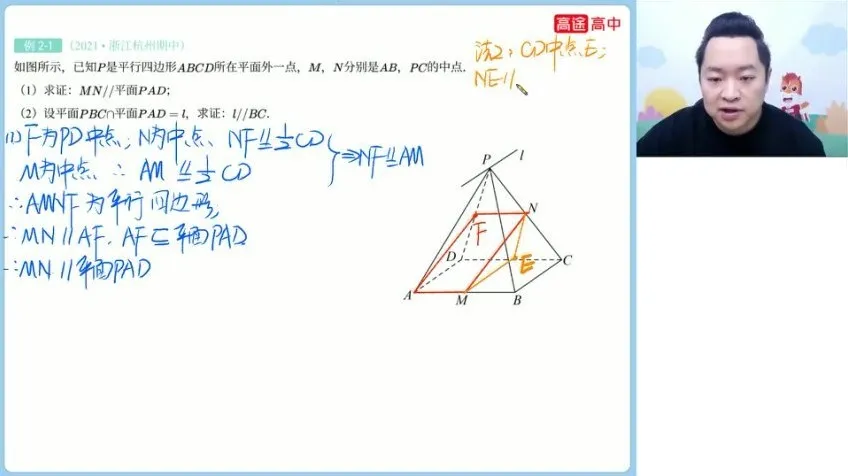 高途 高中
例 2-1 (2021·浙江杭州期中)
如图所示，已知P是平行四边形ABCD所在平面外一点，M，N分别是AB，PC的中点.
(1) 求证：MN//平面PAD；
(2) 设平面PBC∩平面PAD=l，求证：l//BC.
法2：CD中点E；
NE//
(1) F为PD中点；N为中点、NF⫽1/2CD
M为中点 ∴ AM ⫽1/2 CD
⇒NF⫽AM
∴AMNF为平行四边形，
∴MN//AF．AF⊆平面PAD
∴MN//平面PAD
P
l
N
F
D
E
C
A
M
B